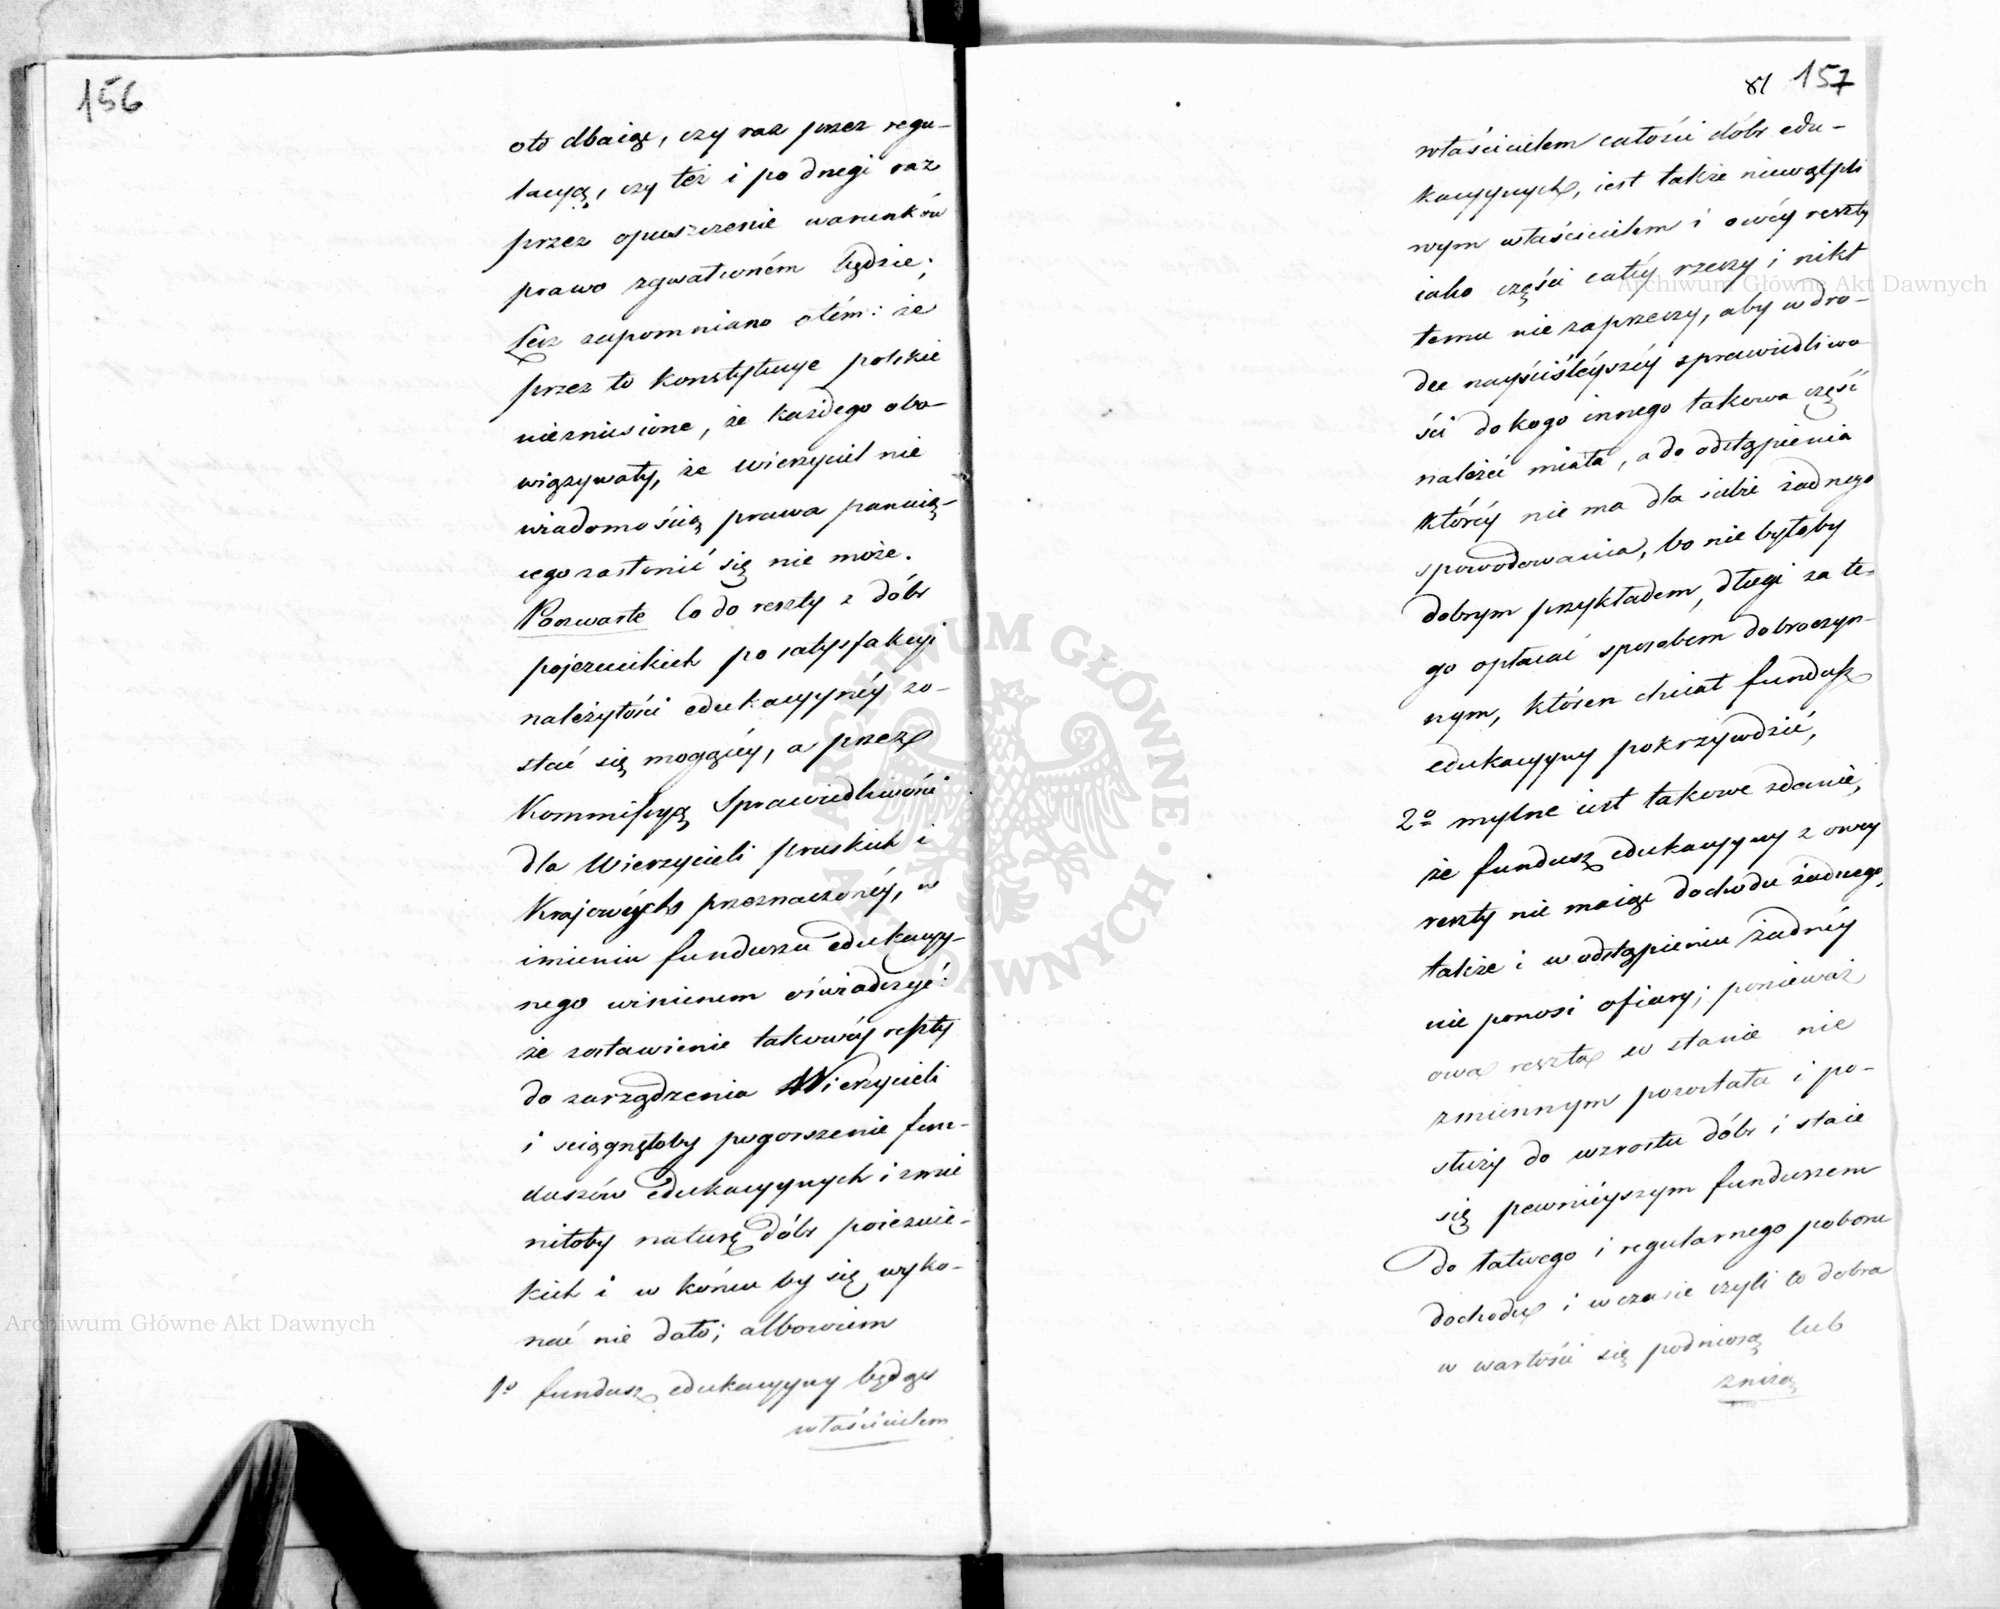 156
oto dbaiąc, czy raz przez regu-
lacyą, czy też i po drugi raz
przez opuszczenie warunków
prawo zgwałconém będzie;
Lecz zapomniano otém: że
przez to konstytucye polskie
niezniesione, że każdego obo-
wiązywały, że Wierzyciel nie
wiadomością prawa panuią-
cego zasłonić się nie może.
Poczwarte Co do reszty z dóbr
pojezuickich po satysfakcyi
należytości edukacyynéy zo-
stać się mogącéy, a przez
Kommissyą Sprawiedliwości
dla Wierzycieli pruskich i
Krajowych przeznaczonéy, w
imieniu funduszu edukacyy-
nego winienem oświadczyć:
że zostawienie takowéy reszty
do zarządzenia Wierzycieli
i sciągnęłoby pogorszenie fun-
duszów edukacyynych i zmie
niłoby naturę dóbr poiezuic-
kich i w końcu by się wyko-
nać nie dało; albowiem
1o fundusz edukacyyny będąc
właścicielem
81 157
właścicielem całości dóbr edu-
kacyynych, iest także niewątpli
wym właścicielem i owéy reszty
iako części całéy rzeczy i nikt
temu nie zaprzeczy, aby w dro-
dze nayściśléyszéy sprawiedliwo
ści do kogo innego takowa część
należeć miała, a do odstąpienia
któréy nie ma dla siebie żadnego
spowodowania, bo nie byłoby
dobrym przykładem, długi za te-
go opłacać sposobem dobroczyn-
nym, któren chciał fundusz
edukacyyny pokrzywdzić,
2o mylne iest takowe zdanie,
że fundusz edukacyyny z owey
reszty nie maiąc dochodu żadnego,
także i w odstąpieniu żadnéy
nie ponosi ofiary; ponieważ
owa reszta w stanie nie
zmiennym pozostała i po-
służy do wzrostu dóbr i staie
się pewniéyszym funduszem
do łatwego i regularnego poboru
dochodu i w czasie czyli to dobra
w wartości się podniosą lub
zniżą
ARCHIWUM GŁÓWNE AKT DAWNYCH
Archiwum Główne Akt Dawnych
Archiwum Główne Akt Dawnych